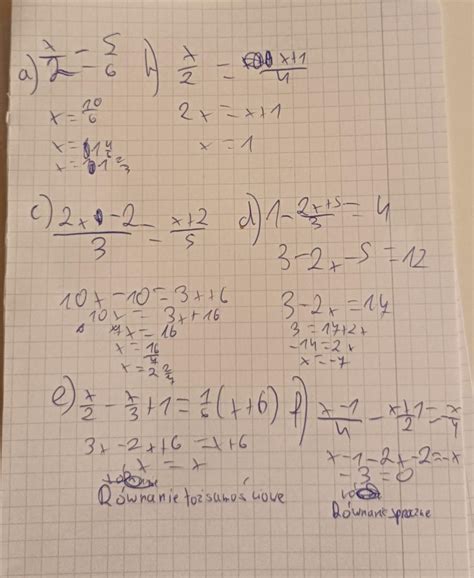 a) x/2 = 5/6
x = 10/6
x = 1 4/6
x = 1 2/3
b) x/2 = x+1/4
2x = x+1
x = 1
c) 2x-2/3 = x+2/5
10x-10 = 3x+6
10x = 3x+16
7x = 16
x = 16/7
x = 2 2/7
d) 1 - 2x+5/3 = 4
3-2x-5 = 12
3-2x = 17
3 = 17+2x
-14 = 2x
x = -7
e) x/2 - x/3 + 1 = 1/6 (x+6)
3x-2x+6 = x+6
x = x
Równanie tożsamościowe
f) x-1/4 - x+1/2 = -x/4
x-1-2x-2 = -x
-3 = 0
Równanie sprzeczne